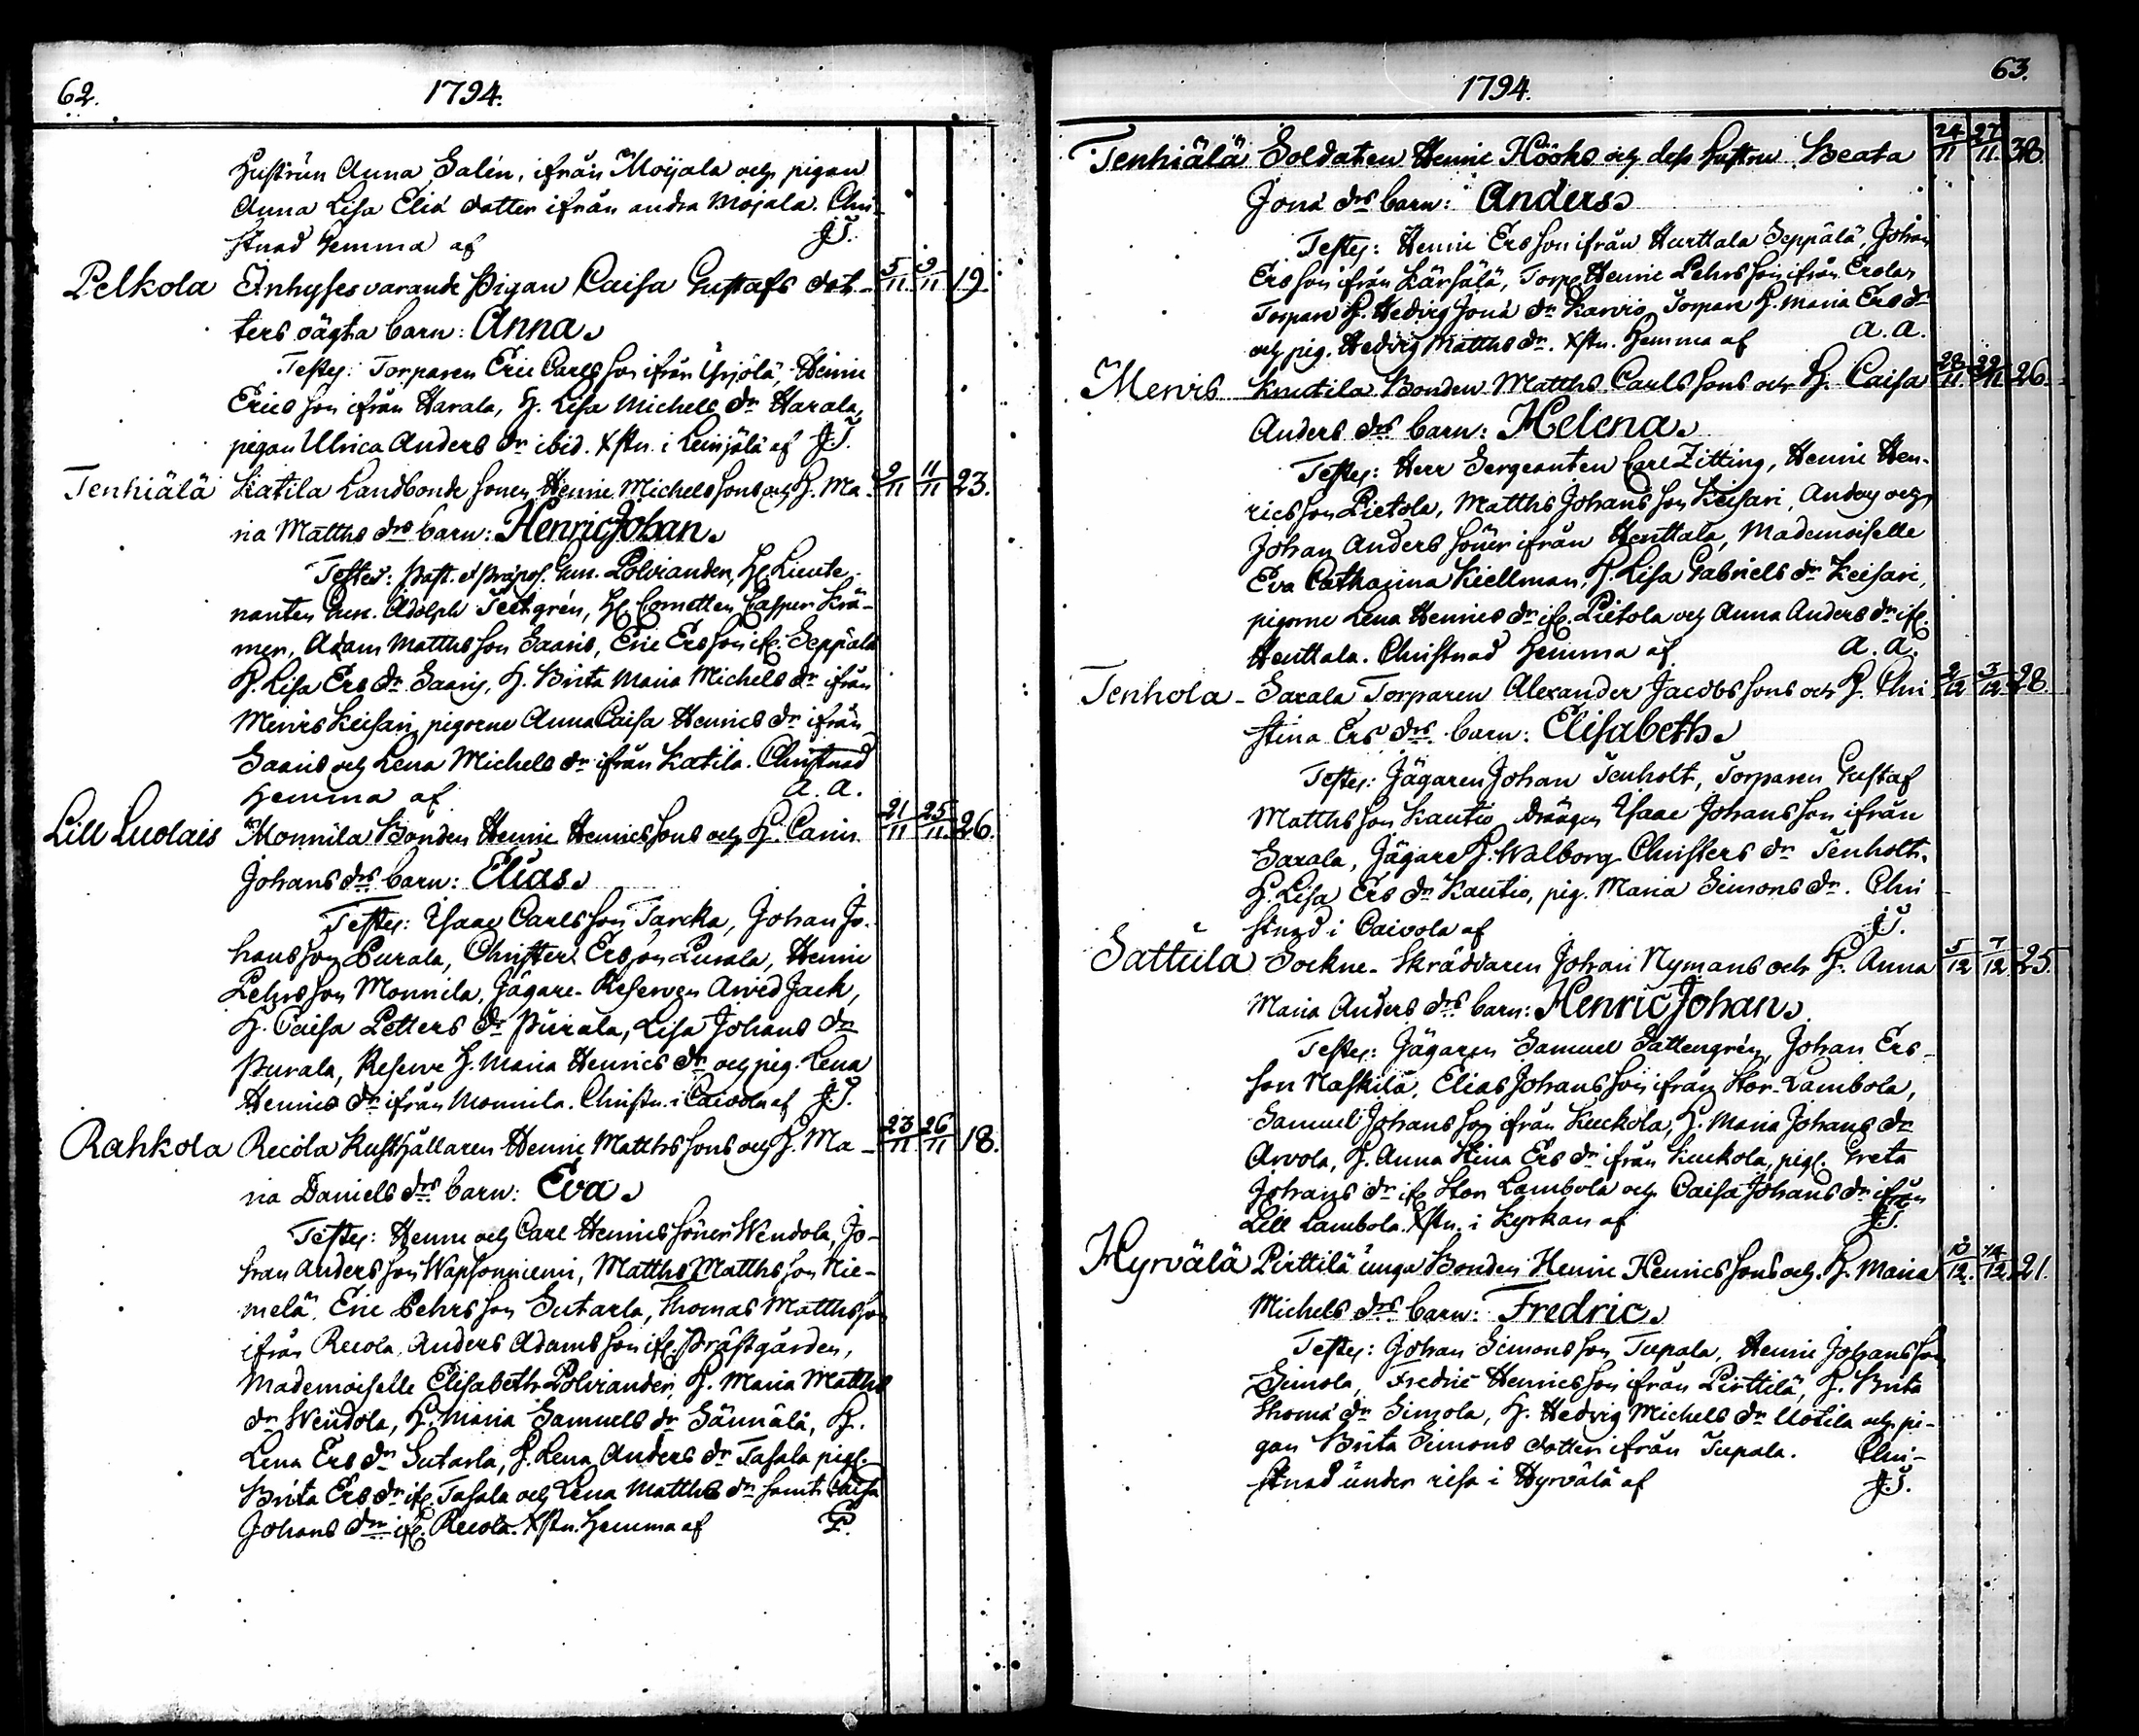 62.
1794.
hustrun Anna Salén, ifrån Moijala och pigan
Anna Lisa Eliæ dotter ifrån andra Mojala. Chri-
stnad hemma af J.T.
Pelkola Inhyses varande Pigan Caisa Gustafs dot- 5/11 9/11 19.
ters oägta barn: Anna.
Testes: Torparen Eric Carlsson ifrån Yrjölä, Henric
Ericsson ifrån Harala, H. Lisa Michels dr Harala,
pigan Ulrica Anders dr ibid. Xstn. i Leinjälä af J.T.
Tenhiälä Katila Landbonde sonen Henric Michelssons och H. Ma- 9/11 11/11 23.
ria Matths drs barn: Henric Johan.
Testes: Past. et Præpos. Polviander, H. Lieute-
nanten Adolph Teetgrén, H. Cornetten Casper Krä-
mer, Adam Matthsson Saaris, Eric Ersson ifr. Seppälä
H. Lisa Ers dr Saaris, H. Brita Maria Michels dr ifrån
Mervis Keisari, pigorne Anna Caisa Henrics dr ifrån
Saaris och Lena Michels dr ifrån Katila. Christnad
hemma af A.A.
Lill Luolais Monnila Bonden Henric Henricssons och H. Carin 21/11 25/11 26.
Johans drs barn: Elias.
Testes: Isaac Carlsson Tarcka, Johan Jo-
hansson Purala, Christer Ersson Purala, Henric
Pehrsson Monnila, Jägare-Reserven Arvid Jack,
H. Caisa Petters dr Purala, Lisa Johans dr
Purala, Reserve H. Maria Henrics dr och pig. Lena
Henrics dr ifrån Monnila. Christn. i Caivola af J.T.
Rahkola Recola Rusthållaren Henric Matthssons och H. Ma- 23/11 26/11 18.
ria Daniels drs barn: Eva.
Testes: Henric och Carl Henricssöner Wendola, Jo-
han Andersson Wapsonniemi, Matths Matthsson Nie-
melä, Eric Pehrsson Sutarla, Thomas Matthsson
ifrån Recola, Anders Adamsson ifr. Prästgården,
Mademoiselle Elisabeth Polviander, H. Maria Matths
dr Wendola, H. Maria Samuels dr Sännälä, H.
Lena Ers dr Sutarla, H. Lena Anders dr Tasala pig.
Brita Ers dr ifr. Tasala och Lena Matths dr samt Caisa
Johans dr ifr. Recola. Xstn. hemma af P.
63.
1794.
Tenhiälä Soldaten Henric Hööks och dess hustru Beata 24/11 27/11 38.
Jonæ drs barn: Anders.
Testes: Henric Ersson ifrån Hurttala Seppälä, Johan
Ersson ifrån Kärsälä, Torp. Henric Pehrsson ifrån Erola,
Torpare H. Hedvig Jonæ dr Karvio, Torpare H. Maria Ers dr
och pig. Hedvig Matths dr. Xstn. hemma af A.A.
Mervis Knutila Bonden Matths Carlssons och H. Caisa 28/11 29/11 26.
Anders drs barn: Helena.
Testes: Herr Sergeanten Carl Zitting, Henric Hen-
ricsson Pietola, Matths Johansson Keisari, Anders och
Johan Anderssöner ifrån Henttala, Mademoiselle
Eva Catharina Kiellman, H. Lisa Gabriels dr Keisari,
pigorne Lena Henrics dr ifr. Pietola och Anna Anders dr ifr.
Henttala. Christnad hemma af A.A.
Tenhola Saxala Torparen Alexander Jacobssons och H. Chri- 2/12 3/12 28.
stina Ers drs barn: Elisabeth.
Testes: Jägaren Johan Tenholt, Torparen Gustaf
Matthsson Kautio, Drängen Isaac Johansson ifrån
Saxala, Jägare H. Walborg Christers dr Tenholt,
H. Lisa Ers dr Kautio, pig. Maria Simons dr. Chri-
stnad i Caivola af J.T.
Sattula Sockne-Skräddaren Johan Nymans och H. Anna 5/12 7/12 25.
Maria Anders drs barn: Henric Johan.
Testes: Jägaren Samuel Sattengrén, Johan Ers-
son Naskila, Elias Johansson ifrån Stor-Lambola,
Samuel Johansson ifrån Kuckola, H. Maria Johans dr
Arvola, H. Anna Stina Ers dr ifrån Kuckola, pig. Greta
Johans dr ifr. Stor Lambola och Caisa Johans dr ifrån
Lill Lambola. Xstn. i Kyrkan af J.T.
Hyrvälä Pirttilä unga Bonden Henric Henricssons och H. Maria 10/12 14/12 21.
Michels drs barn: Fredric.
Testes: Johan Simonsson Tupala, Henric Johansson
Simola, Fredric Henricsson ifrån Pirttilä, H. Brita
Thomæ dr Simola, H. Hedvig Michels dr Uotila och pi-
gan Brita Simons dotter ifrån Tupala. Chri-
stnad under resa i Hyrvälä af J.T.